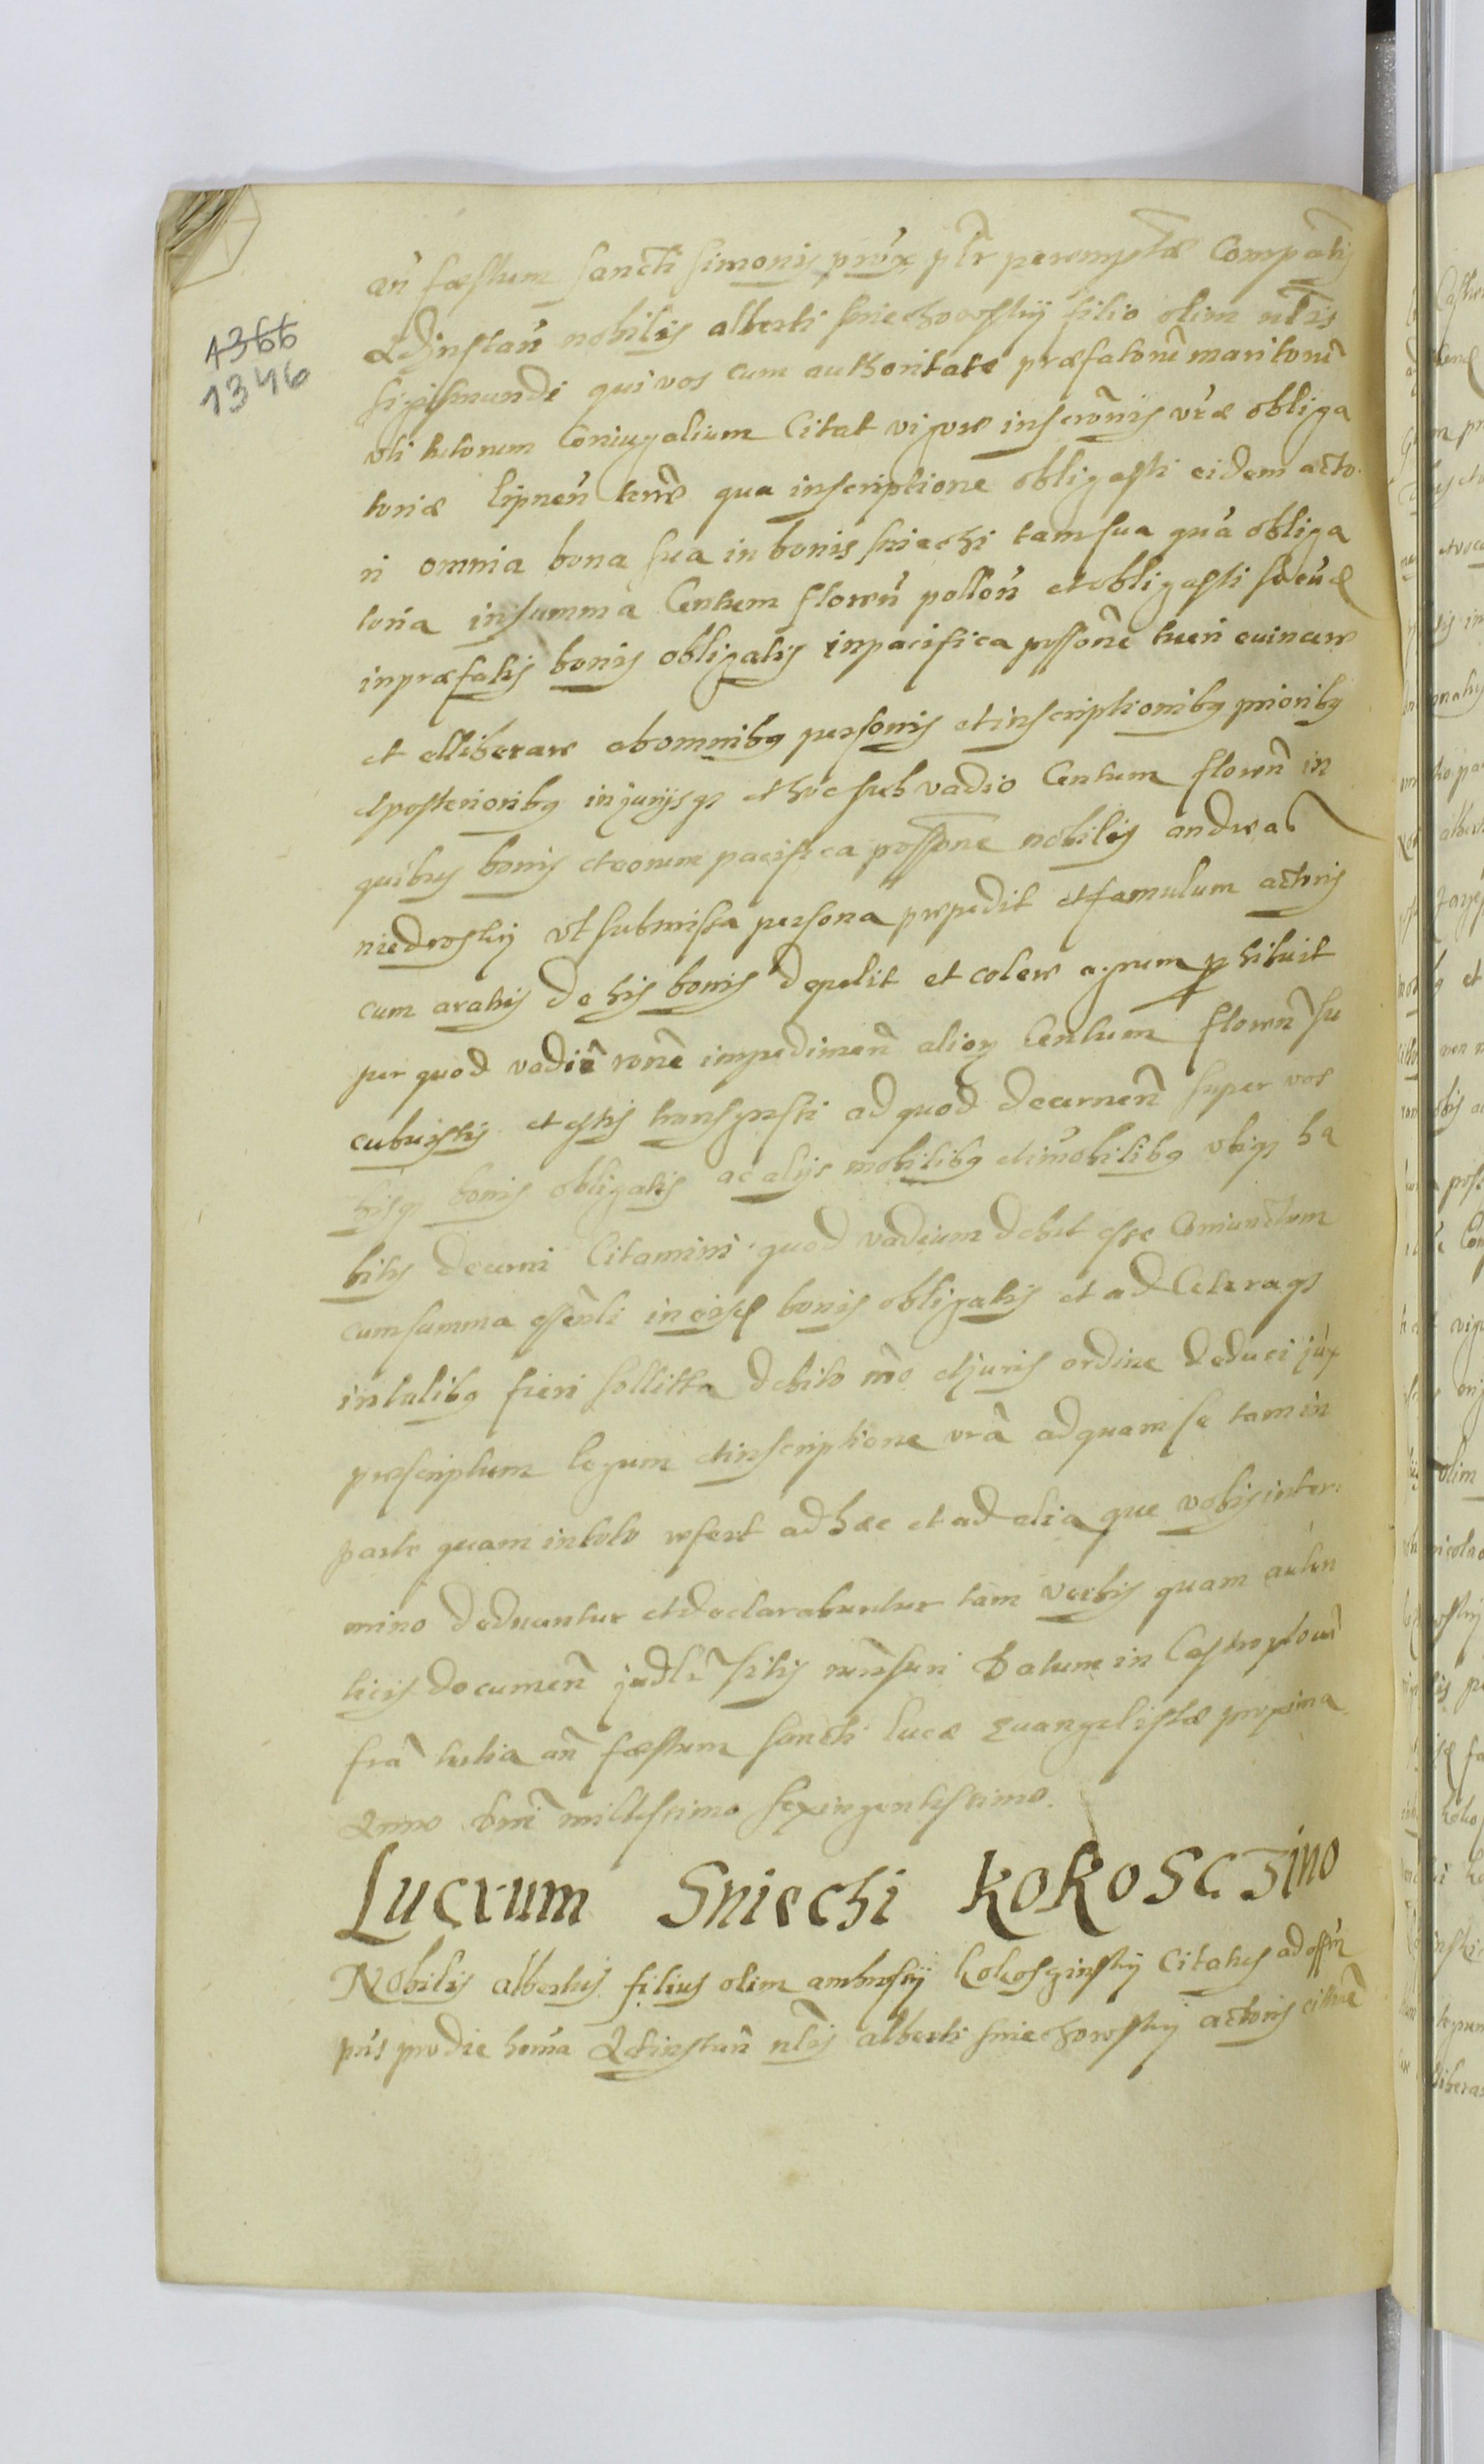 1366
1346
añ fæstum sancti simonis prox pltr peremptæ Compatis
Adjnstañ nobilis alberti sniechowskij filio olim nlis
sigismundi qui vos cum authoritate præfatorũ maritorũ
vti tutorum Coniugalium Citat vigore inscrõnis vræ obliga
toriæ lipneñ terre qua inscriptione obligasti eidem acto
ri omnia bona sua in bonis sniechi tam sua quã obliga
toria in summa Centum floreñ polloñ et obligasti se eũd
in præfatis bonis obligatis in pacifica possone tueri euincere
et elliberare ab omnibq personis et inscriptionibq prioribq
et posterioribq injurijsqs et hoc sub vadio Centum floreñ in
quibus bonis et eorum pacifica possone nobilis andreas
niedroskij vt submissa persona prepedit et famulum actoris
cum aratris de his bonis depelit et colere agrum phibuit
per quod vadiũ rone impedimeñ alior Centum floreñ su
cubuistis et estis transgressi ad quod decerneñ super vos
hisqs bonis obligatis ac alijs mobilibq et imobilibq vbiqs ha
bitis decerni Citamini quod vadium debet esse Coniunctum
cum summa essenli in eisd bonis obligatis et ad Ceteraqs
in talibq fieri sollitta debito mo et juris ordine deduci jux
prescriptum legum et inscriptione vrã ad quam se tam in
parte quam in toto refert ad hæc et ad alia que vobis in ter
mino deducentur et declarabuntur tam verbis quam auten
ticis documeñ judlr sitis rñsuri Datum in Castro
fra tertia añ fæstum sancti lucæ Euangelistæ proxima
Anno Dni millesimo sexingentesimo.
Lucrum Sniechi Kokosczino
Nobilis albertus filius olim ambrosij kokosginskij Citatus ad offm
pñs pro die hoña Ad instañ nlis alberti sniechowskij actoris